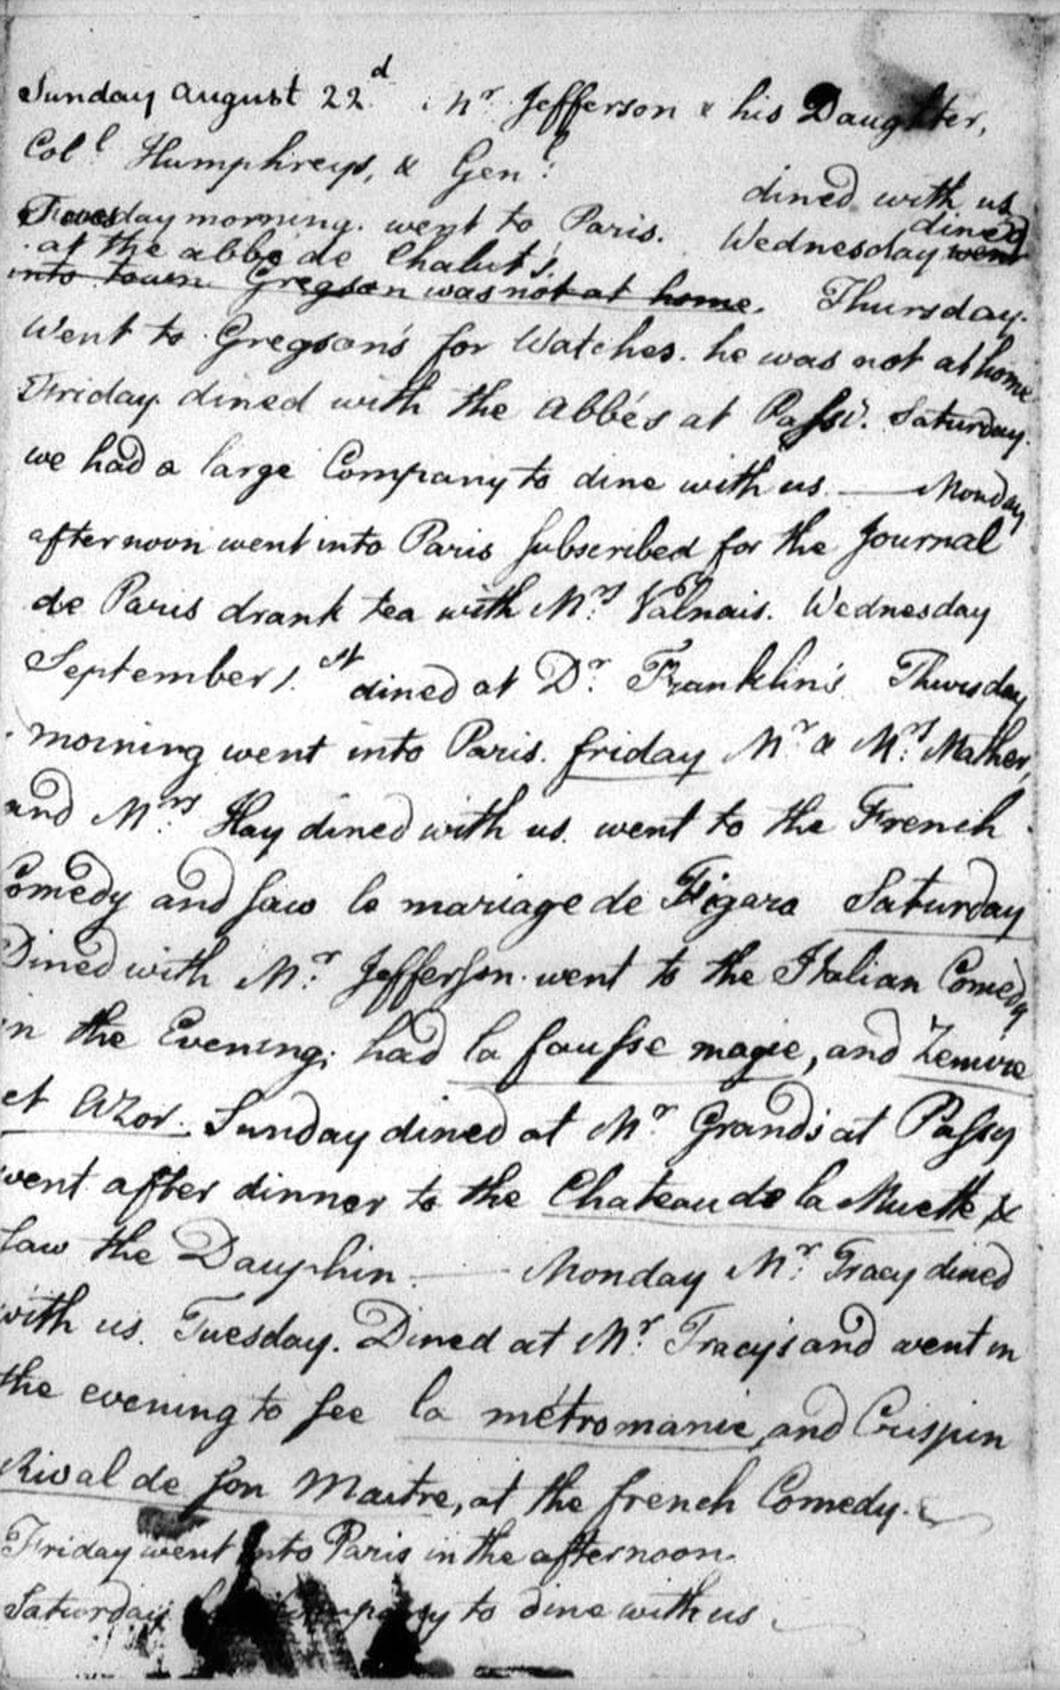 Sunday august 22.d Mr. Jefferson & his Daughter,
Coll Humphreys, & Genl.
dined with us
Tuesday morning. went to Paris. Wednesday went dined
at the abbé de Chalut's.
into town Gregson was not at home. Thursday.
Went to Gregson's for Watches. he was not at home
Friday dined with the Abbés at Passi. Saturday.
we had a large Company to dine with us — Monday
afternoon went into Paris subscribed for the Journal
de Paris drank tea with Mrs. Valnais. Wednesday
September 1.st dined at Dr. Franklin's Thursday
morning went into Paris. friday Mr. & Mrs. Mather,
and Mrs. Hay dined with us. went to the French
Comedy and saw le mariage de Figaro Saturday
Dined with Mr. Jefferson. went to the Italian Comedy
in the Evening; had la fausse magie, and Zemire
et Azor. Sunday dined at Mr. Grand's at Passy
went after dinner to the Chateau de la Muette, &
saw the Dauphin. — Monday Mr. Tracy dined
with us. Tuesday. Dined at Mr. Tracy's and went in
the evening to see la métromanie, and Crispin
Rival de son Maitre, at the french Comedy.
Friday went into Paris in the afternoon.
Saturday company to dine with us